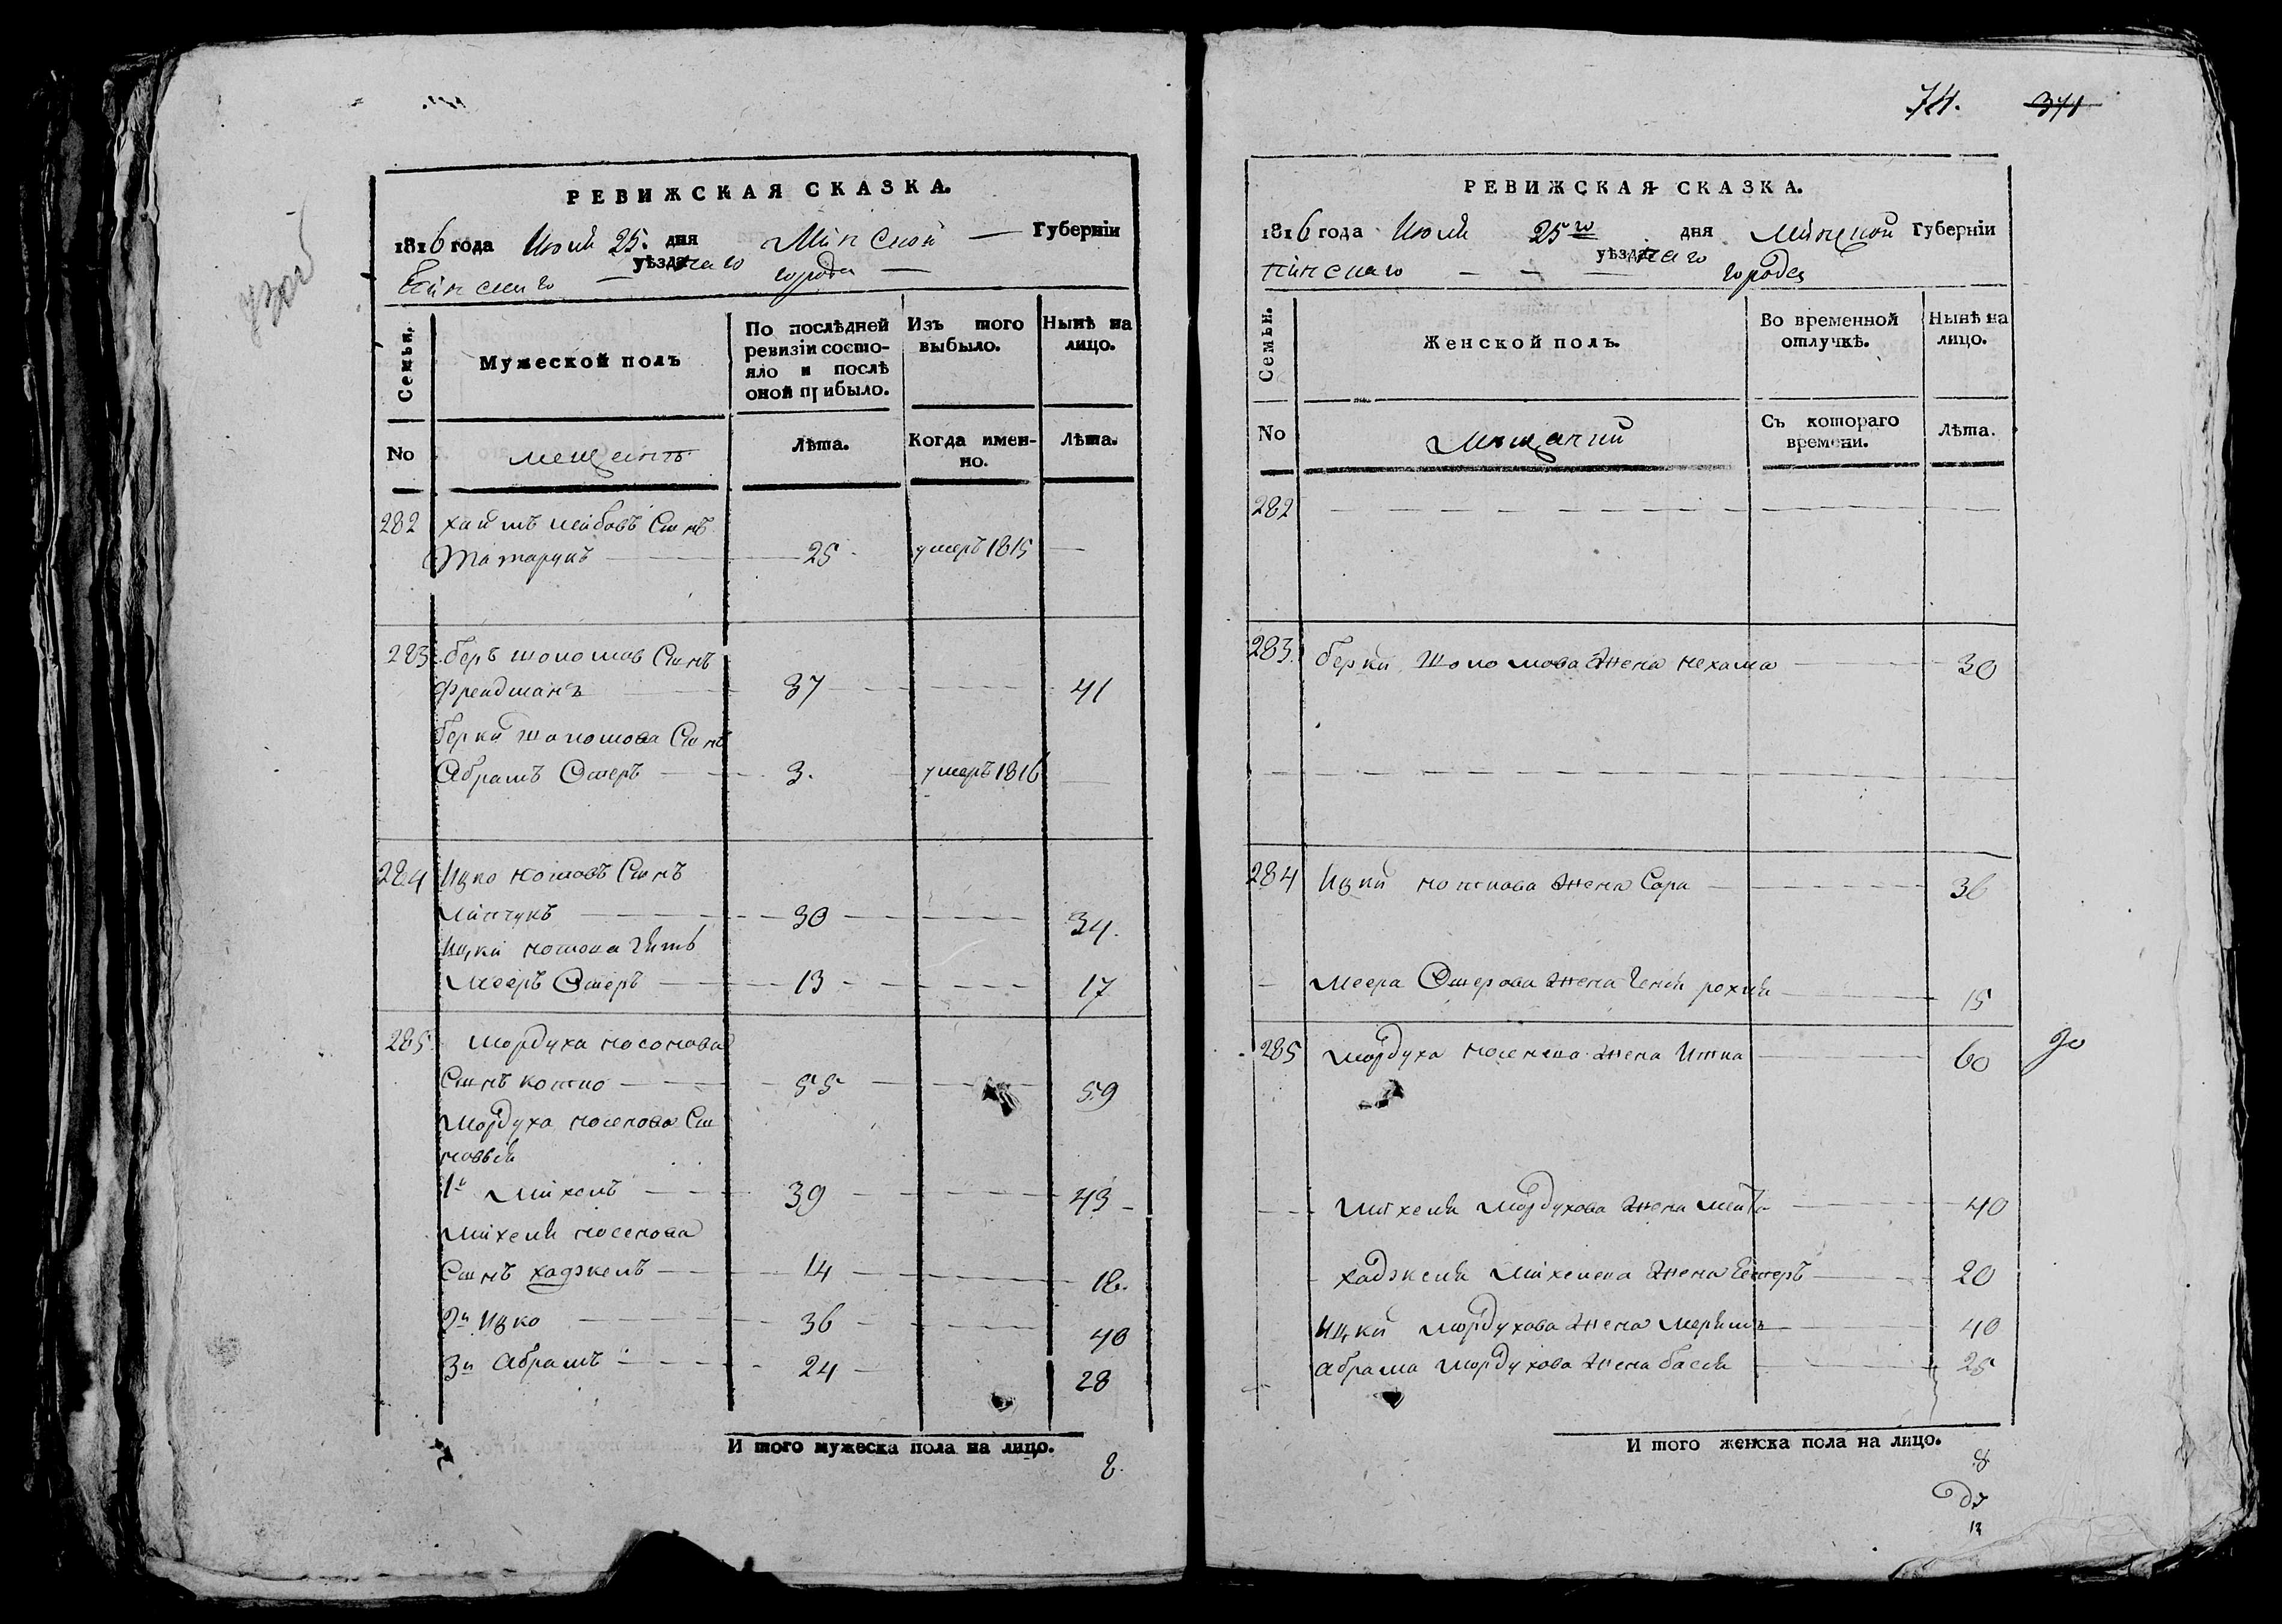 РЕВИЖСКАЯ СКАЗКА.
1816 года Июля 25. дня Минской Губерніи
Пинскаго уѣзднаго города
Семьи.
Мужеской полъ
По послѣдней ревизіи состояло и послѣ оной прибыло.
Изъ того выбыло.
Нынѣ на лицо.
No
мещанъ
Лѣта.
Когда именно.
Лѣта.
282 хаимъ лейбовъ Сынъ
25 умеръ 1815
283 беръ шоломов Сынъ
Фреидманъ 37 41
берки шоломова Сынъ
Абрамъ Ошеръ 3. умеръ 1816
284 Ицко Сынъ
30 34.
Ицки зять
Мееръ Ошеръ 13 17
285. Мордуха носонова
Сынъ 55 59
Мордуха носенова Сы
новья
1й Михель 39 43
Михеля носенова
Сынъ хацкель 14 18.
2й Ицко 36 40
3й Абрамъ 24 28
И того мужеска пола на лицо.
8.
74. 371
РЕВИЖСКАЯ СКАЗКА.
1816 года Июля 25го дня Минской Губерніи
пинскаго уѣзднаго города
Семьи.
Женской полъ.
Во временной отлучкѣ.
Нынѣ на лицо.
No
Мещанки
Съ котораго времени.
Лѣта.
282
283. берки Шоломова жена нехама 30
284 Ицки жена Сора 36
Меера Ошерова жена 15
285 Мордуха жена Итка 60
Михеля Мордухова жена 40
хацкеля Михелева жена Естеръ 20
Ицки Мордухова жена 40
Абрама Мордухова жена бася 25
И того женска пола на лицо.
8